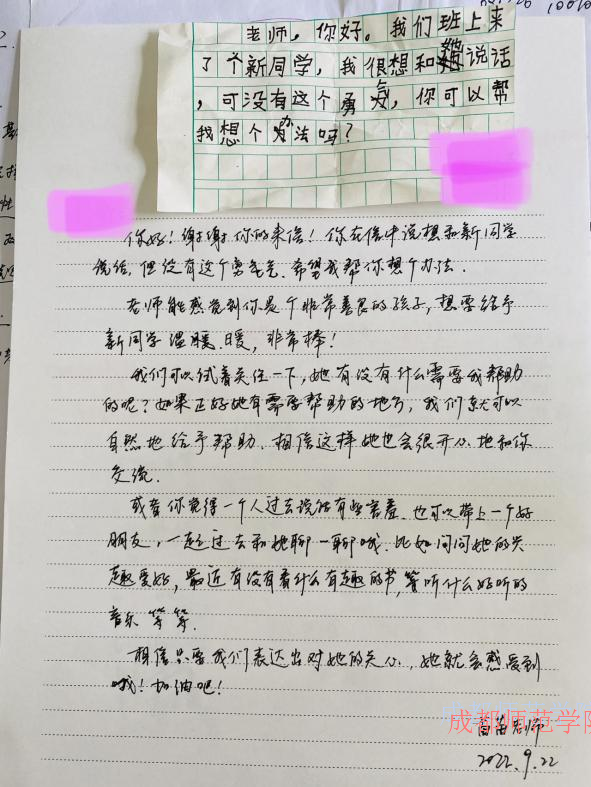 老师，你好。我们班上来
了个新同学，我很想和她说话
，可没有这个勇气，你可以帮
我想个办法吗？
你好！谢谢你的来信！你在信中说想和新同学
说话，但没有这个勇气，希望我帮你想个办法.
老师能感觉到你是个非常善良的孩子，想要给予
新同学温暖.暖，非常棒！
我们可以试着关注一下，她有没有什么需要我帮助
的呢？如果正好她有需要帮助的地方，我们就可以
自然地给予帮助.相信这样她也会很开心地和你
交流.
或者你觉得一个人过去说话有些害羞.也可以带上一个好
朋友，一起过去和她聊一聊哦.比如问问她的兴
趣爱好，最近有没有看什么有趣的书，等听什么好听的
音乐 等等.
相信只要我们表达出对她的关心，她就会感受到
哦！加油吧！
苗苗老师
成都师范学院
2022.9.22